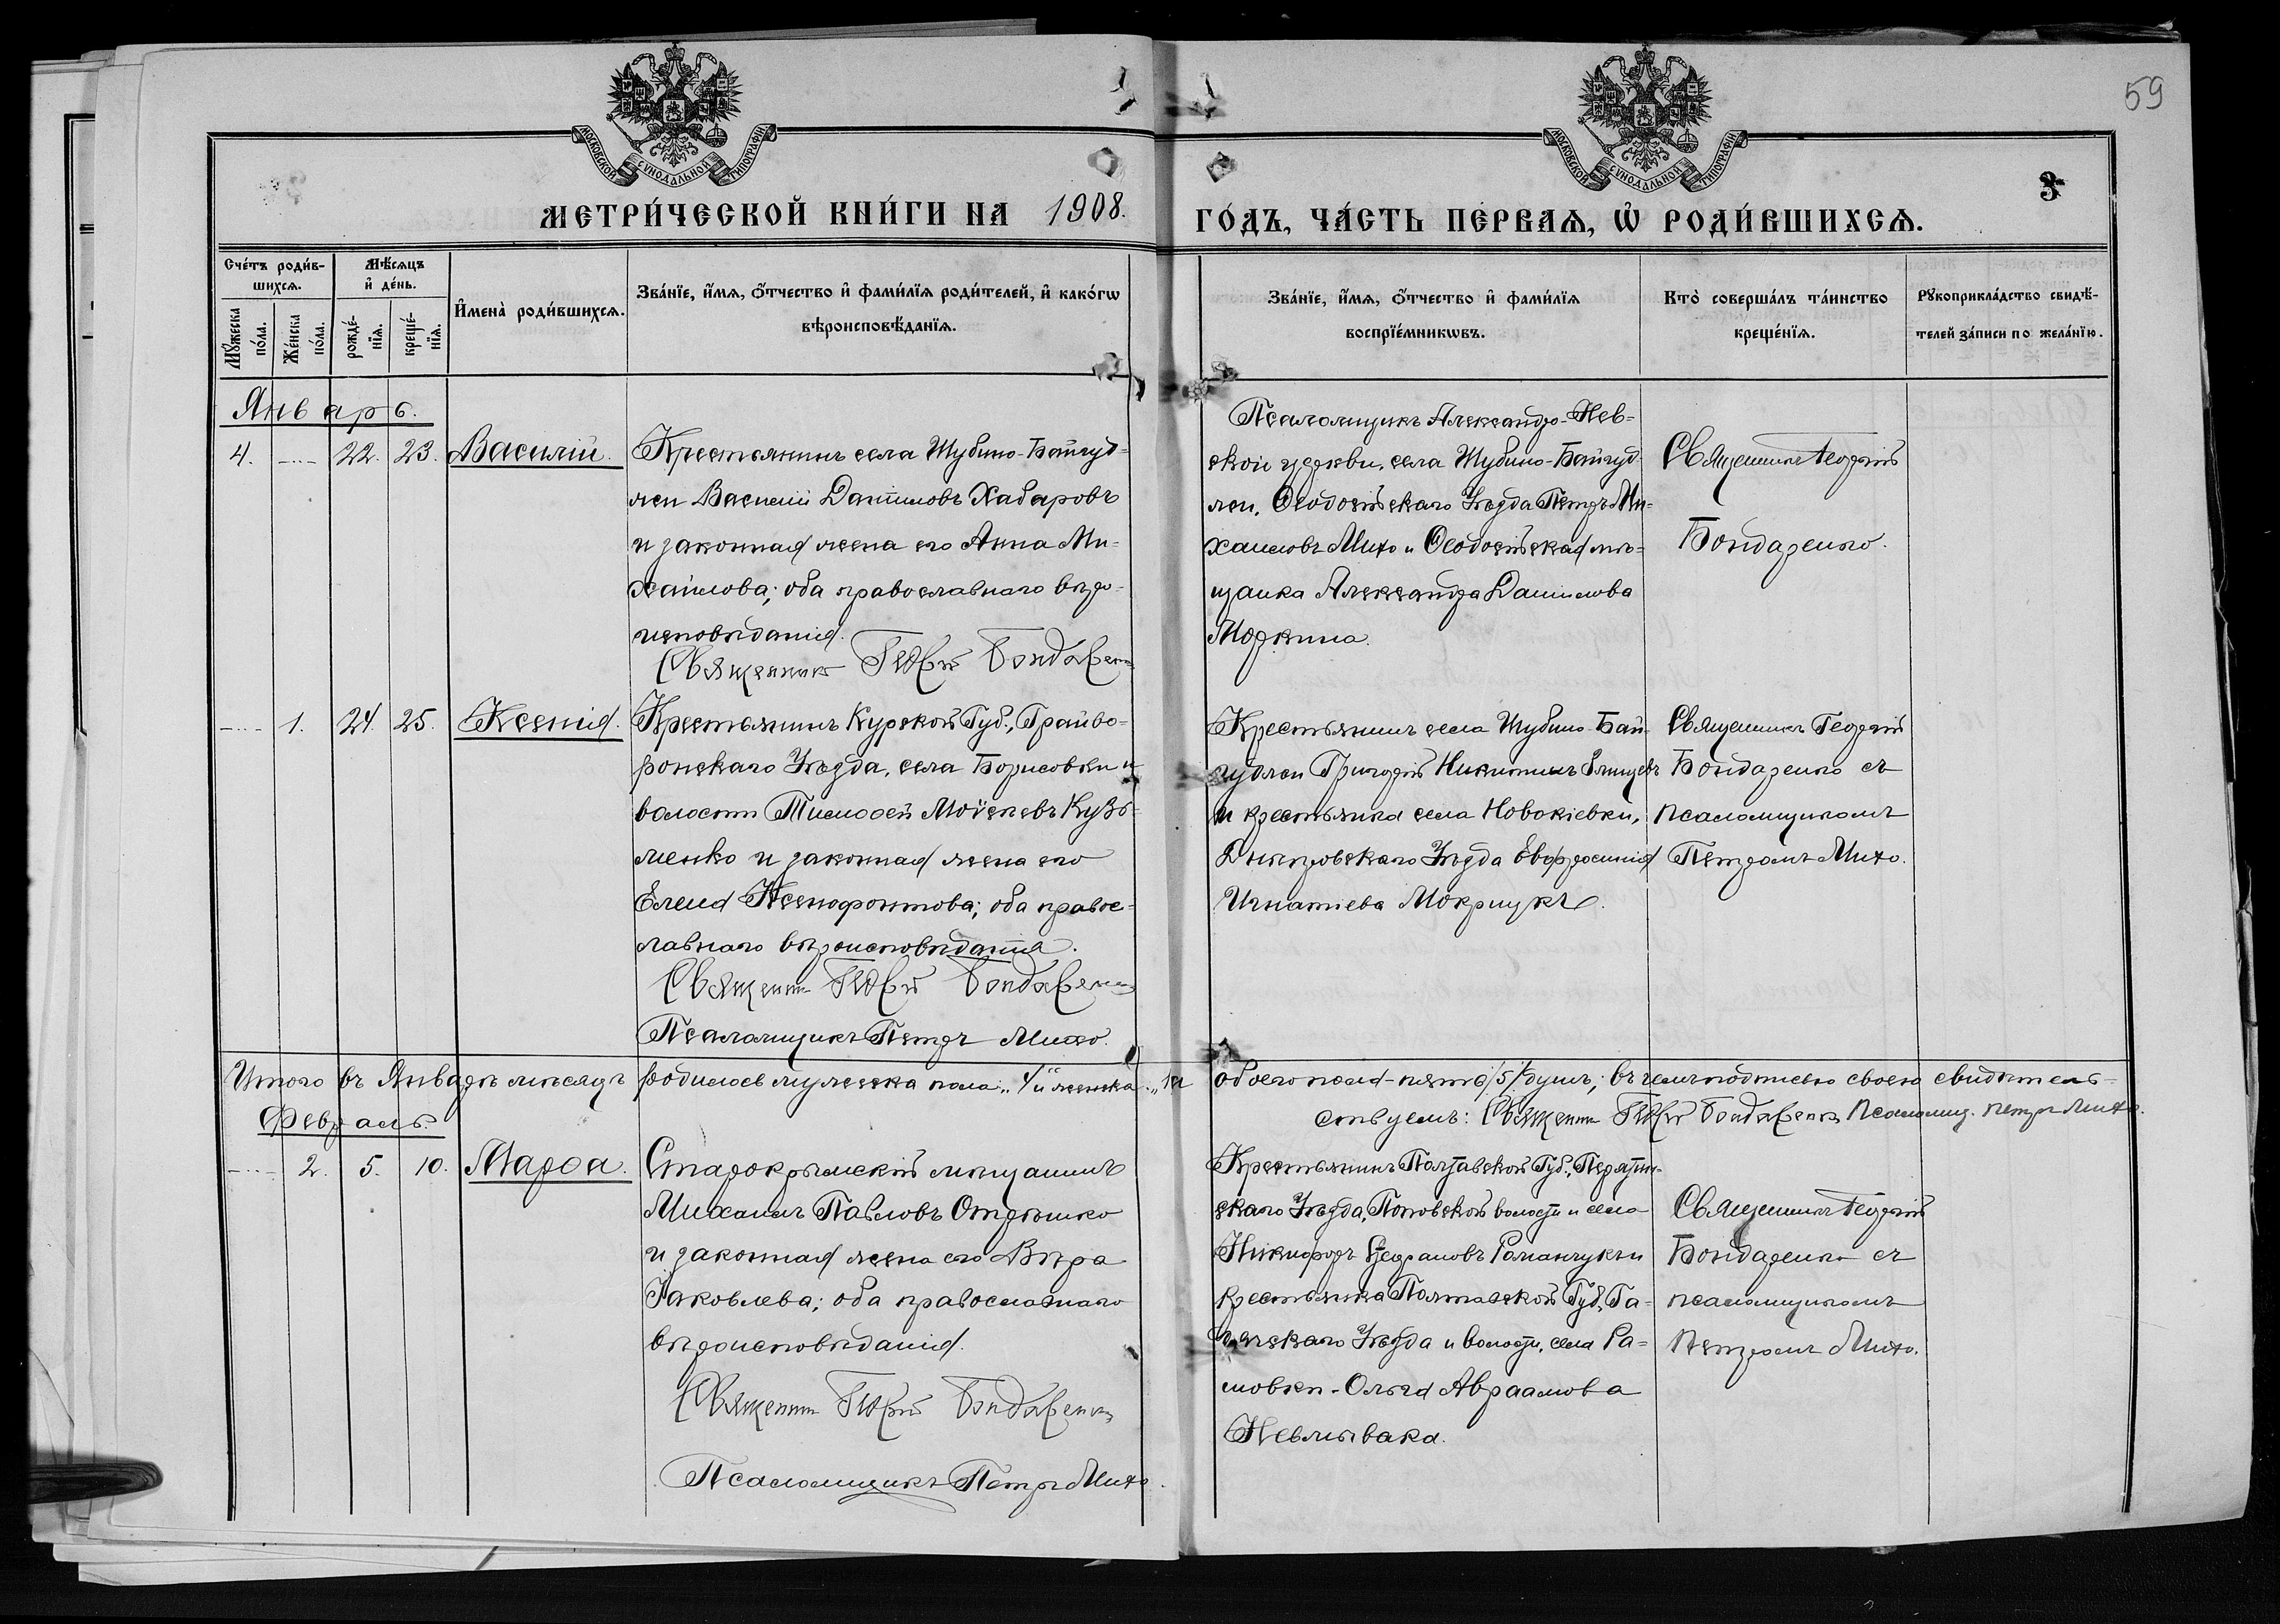 59
МОСКОВСКОЙ СѴНОДАЛЬНОЙ ТИПОГРАФІИ
МОСКОВСКОЙ СѴНОДАЛЬНОЙ ТИПОГРАФІИ
3
МЕТРИ́ЧЕСКОЙ КНИ́ГИ НА 1908. ГО́ДЪ, ЧА́СТЬ ПЕ́РВАѦ, Ѽ РОДИ́ВШИХСѦ.
Сче́тъ роди́в-
шихсѧ.
Мꙋ́жеска
по́ла.
Же́нска
по́ла.
Мѣ́сѧцъ
и҆ де́нь.
рожде́-
нїѧ.
креще́-
нїѧ.
И҆мена̀ роди́вшихсѧ.
Зва́нїе, и҆́мѧ, ѻ҆́тчество и҆ фами́лїѧ роди́телей, и҆ како́гѡ
вѣроисповѣ́данїѧ.
Зва́нїе, и҆́мѧ, ѻ҆́тчество и҆ фами́лїѧ
воспрїе́мникѡвъ.
Кто̀ соверша́лъ та́инство
креще́нїѧ.
Рꙋкоприкла́дство свидѣ́-
телей за́писи по жела́нїю.
Январь.
4. 22. 23. Василій.
Крестьянинъ села Шубино-Байгуд-
жи Василій Даниловъ Хабаровъ
и законная жена его Анна Ми-
хайлова; оба православнаго вѣро-
исповѣданія.
Священникъ Георгій Бондаренко
Псаломщикъ Александро-Нев-
ской церкви, села Шубино-Байгуд-
жи, Ѳеодосійскаго Уѣзда Петръ Ми-
хаиловъ Михо и Ѳеодосійская мѣ-
щанка Александра Данилова
Священникъ Георгій
Бондаренко.
1. 24. 25. Ксенія.
Крестьянинъ Курской Губ., Грайво-
ронскаго Уѣзда, села Борисовки и
волости Тимоѳей Моѵсеевъ Кузь-
менко и законная жена его
Елена Ксенофонтова; оба правос-
лавнаго вѣроисповѣданія.
Священникъ Георгій Бондаренко
Псаломщикъ Петръ Михо.
Крестьянинъ села Шубино-Бай-
гуджи Григорій Никитинъ
и крестьянка села Новокіевки,
Днѣпровскаго Уѣзда Евфросинія
Игнатіева Мокрицкъ.
Священникъ Георгій
Бондаренко съ
псаломщикомъ
Петромъ Михо.
Итого въ Январѣ мѣсяцѣ родилось мужеска пола „4" и женска „1" обоего пола - пять /5/ душъ; въ чемъ подписью своею свидѣтель-
ствуемъ: Священникъ Георгій Бондаренко, Псаломщ. Петръ Михо.
Февраль.
2. 5. 10. Марѳа.
Старокрымскій мѣщанинъ
Михаилъ Павловъ Отрѣшко
и законная жена его Вѣра
Іаковлева; оба православнаго
вѣроисповѣданія.
Священникъ Георгій Бондаренко
Псаломщикъ Петръ Михо.
Крестьянинъ Полтавской Губ., Пирятин-
скаго Уѣзда, Поповской волости и села
Никифоръ Романчукъ и
крестьянка Полтавской Губ., Га-
дячскаго Уѣзда и волости, села Ра-
шовки - Ольга Авраамова
Невмывака.
Священникъ Георгій
Бондаренко съ
псаломщикомъ
Петромъ Михо.